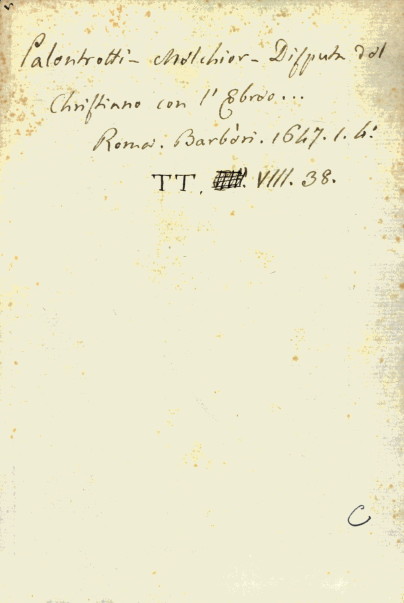 Palontrotti - Melchior - Disputa del
Christiano con l'Ebreo...
Roma. Barberi. 1647. 1. 4º
TT. VIII. 38.
C